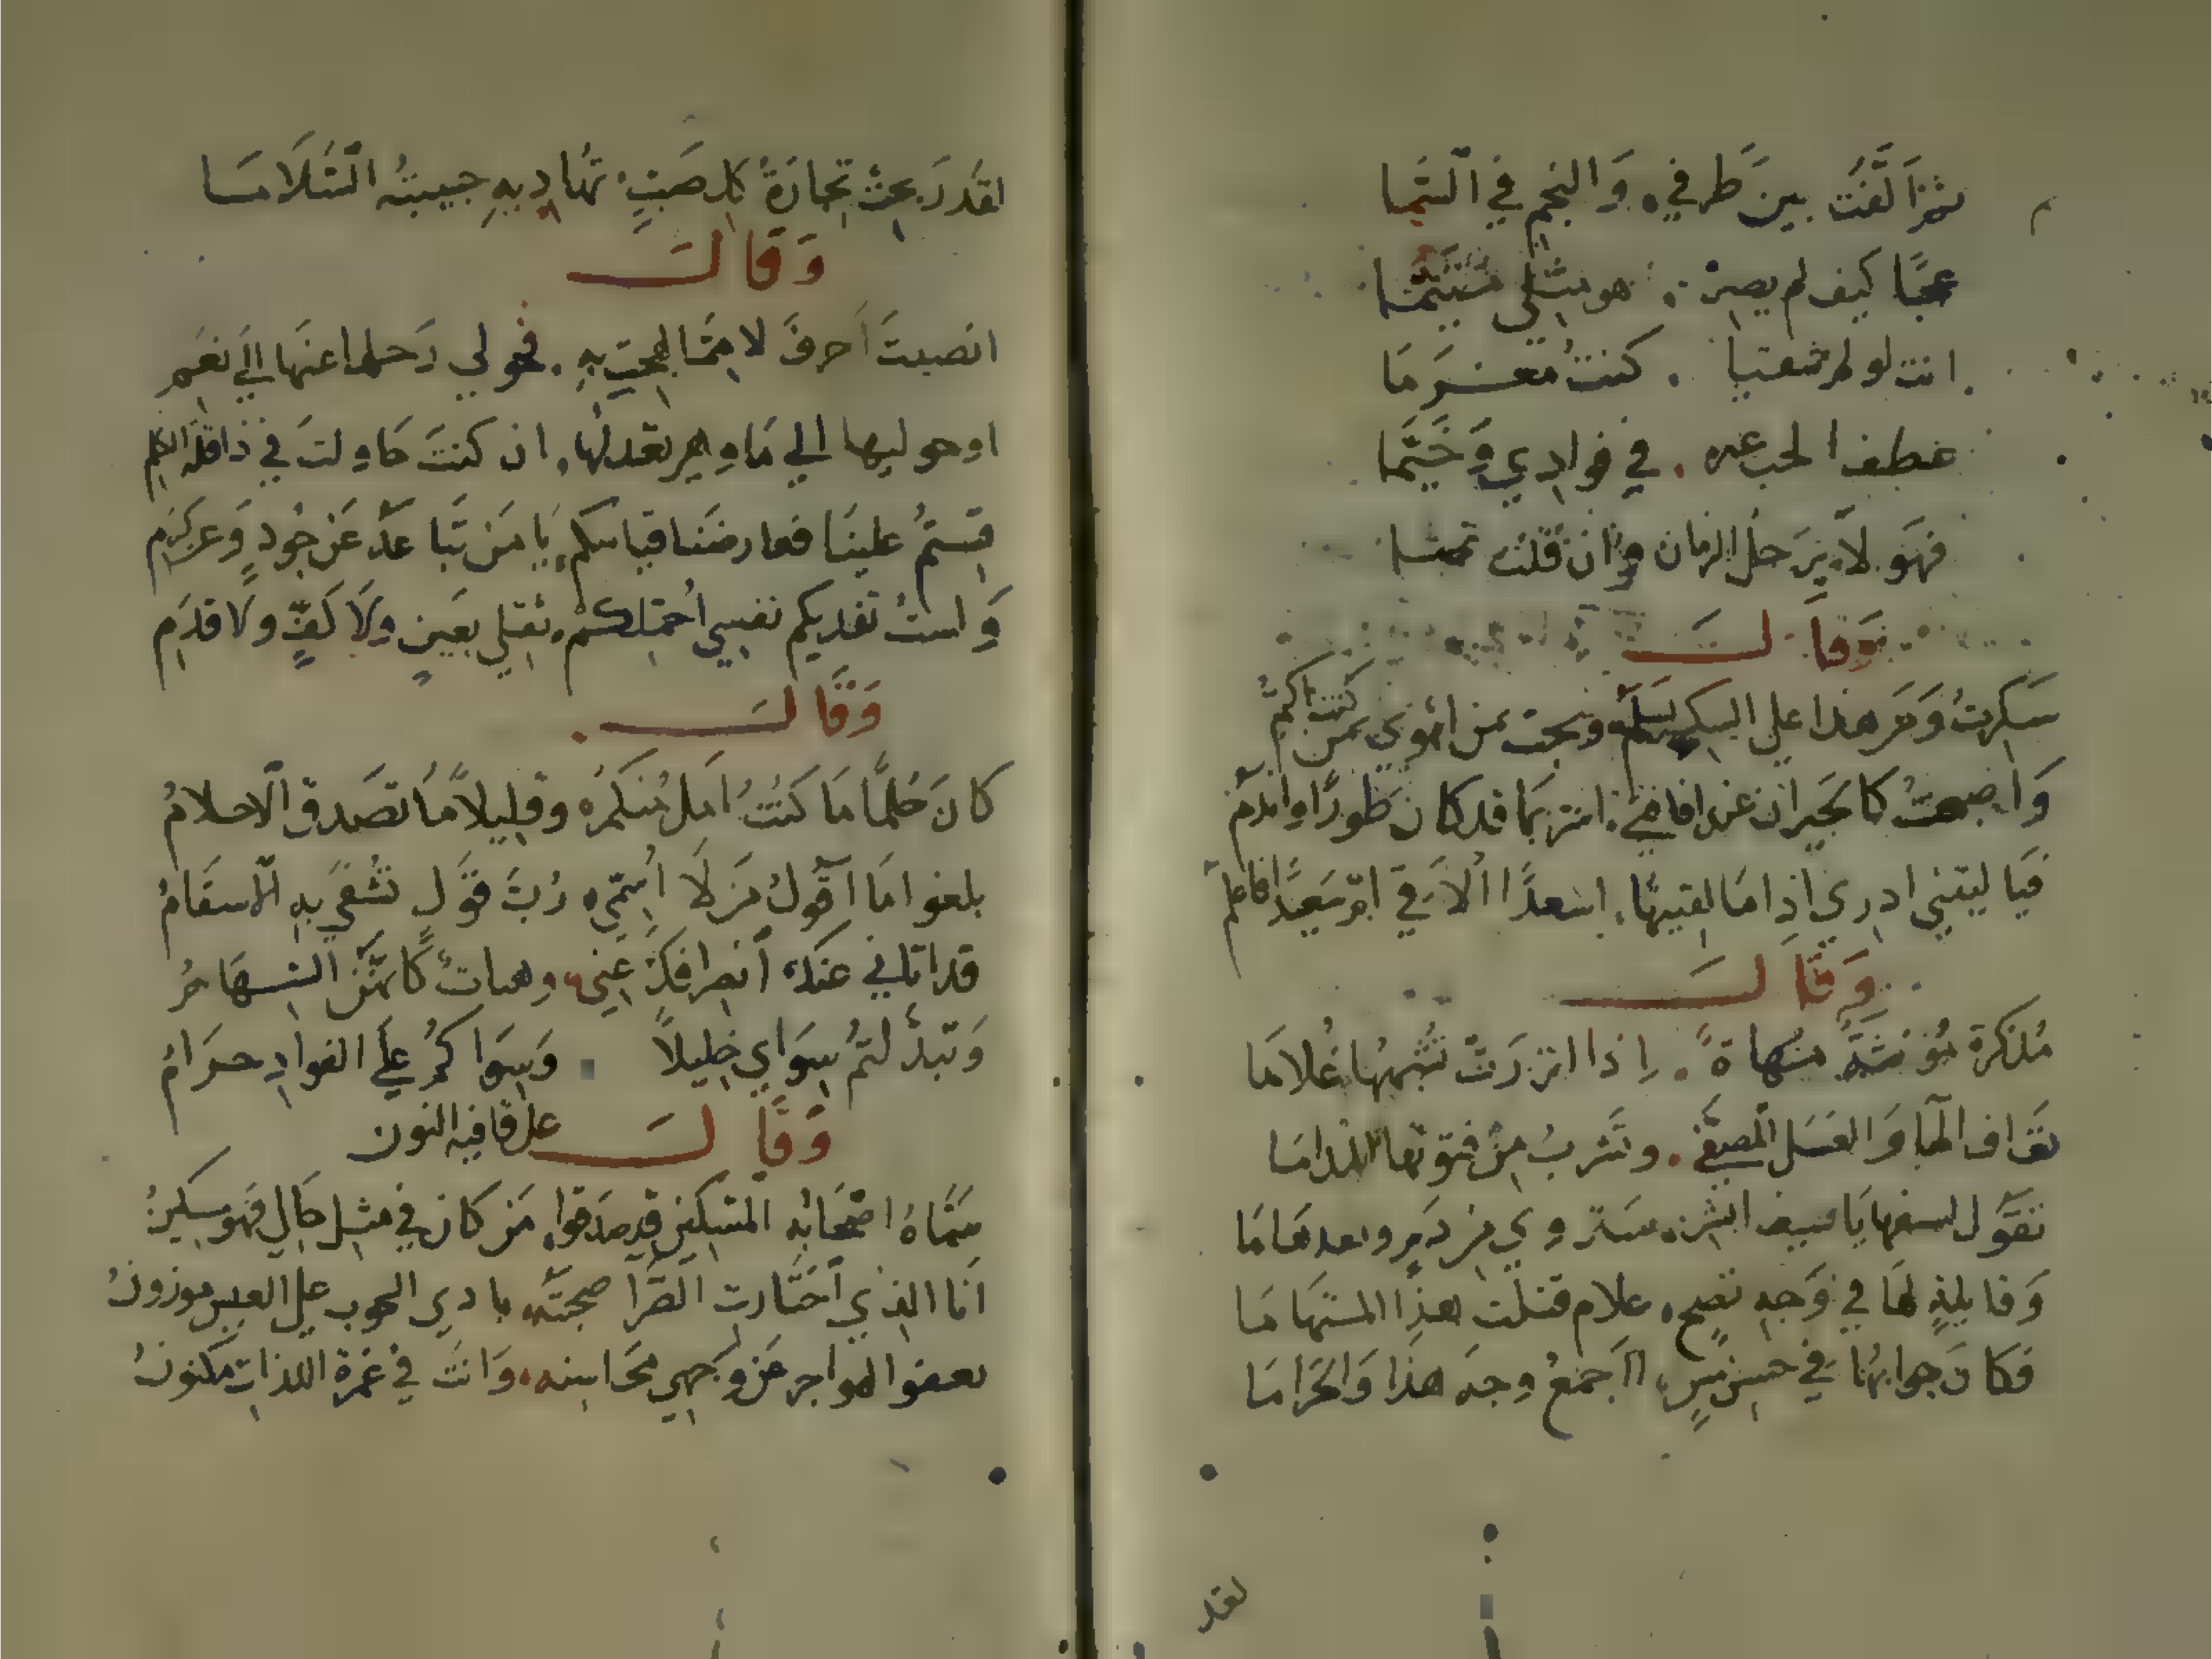 ثم الّفت بين طرفي والنجم في السّما
عجبًا كيف لم يصر هو مثلي متيّما
انت لو لم شقتيا كنتُ مغرَمَا
عطف الحب في فوادي وَخَيَّما
فهَو لاَ يرَحل الزمان وان قلت
وَقَالَ
سَكرتُ وَمَر هذا علي السكر يسلم وبحت بمن اهوي بمن كنت اكتمُ
وَاصبحتُ كالحيران عند افاقتي بما قد كان طورًا واندم
فيَا ليتني ادري اذا مَا لقيتها اسعدًا الاقي ام سَعيدًا فاعلم
وَقَالَ
مُذكرة مُؤنثَّة مهَاة اذا انزرَتْ تُشبّهُها غُلامَا
تعَاف المَا وَالعَسَل المصفَّي وتَشربُ مِن فتوتها المدامَا
تقوَّل لسيفها يَا سيف ابشر سَتروي من دمٍ وهَامَا
وَقايلةٍ لهَا في وَجه نصح علام قتلت هذا المستهامَا
فكانَ جوابهُا في حسن مسٍّ ااَجمعُ وجهَ هذا وَالحَرامَا
لقد
لقد رَبحتْ تجارَةُ كل صَبٍّ تهَاديهِ حبيبتُه السَّلاَمَا
وَقَالَ
انصبتَ اَحرفَ لا ممّا لهجت بهِ فحولي رَحلها عنهَا الي نعَمِ
او حوليها الي مَا وهي تعدلُها ان كنتَ حَاولتَ في ذا قلّة الكلم
قستمُ علينَا فعارضنَا قياسكم يَا مَن تبَاعدَ عَن جُودٍ وَعن كرَمِ
وَلستُ تفديكم نفسي احُمّلكم ثقلي بعَينٍ وَلاَ كَفٍّ ولا قدَمِ
وَقَالَ
كانَ حُلمًا مَا كنتُ اَمل منكمُ وقليلاً مَا تصَدق الاحلامُ
بلغوا مَا اقُولُ مَن لاَ اُسَمّي رُبَّ قوَل تُشفَي بهِ الاَسقَامُ
قد اتاني عَنكمُ انصرافكُمُ عَنّي وهناتٌ كَانهّن السّهَامُ
وَتبدَّلتمُ سِوَاي خليلاً وَسِوَاكمُ عَلَي الفوادِ حرَامُ
وَقَالَ علي قافيه النون
سَمَّاهُ اصحَابُه المسكين قد صدقوا من كان في مثل حَالي فهَو مسكينُ
اَنا الذي اَختارت القَرا صحبتَه بادي الحوب علي العيس موزونُ
تعفوا الهواجر من وجهي محَاسنه وَانتَ في غمرة اللذات مكنونُ